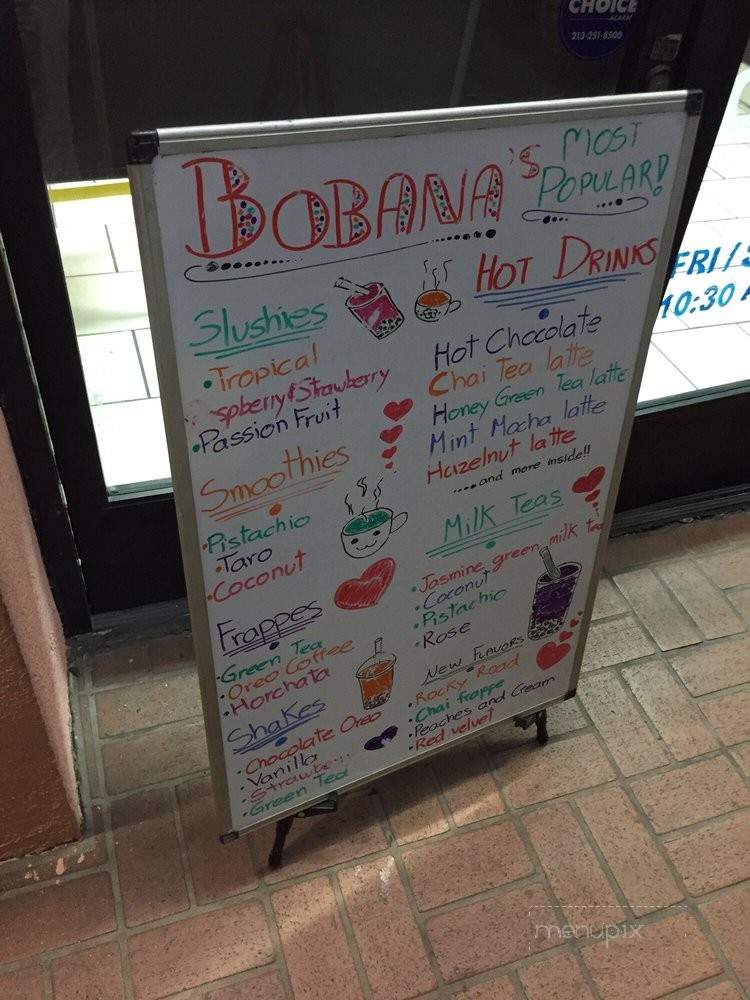 CHOICE
ALARM
213-251-8500
BOBANA's MOST POPULAR!
Slushies
• Tropical
spberry & Strawberry
• Passion Fruit
Smoothies
• Pistachio
• Taro
• Coconut
Frappes
• Green Tea
• Oreo Coffee
• Horchata
Shakes
• Chocolate Oreo
• Vanilla
• Strawbe
• Green Tea
HOT DRINKS
Hot Chocolate
Chai Tea latte
Honey Green Tea latte
Mint Mocha latte
Hazelnut latte
.....and more inside!!
MILK TEAS
• Jasmine green milk tea
• Coconut
• Pistachio
• Rose
NEW FLAVORS
• Rocky Road
• Chai frappe
• Peaches and Cream
• Red velvet
FRI/S
10:30 A
menupix